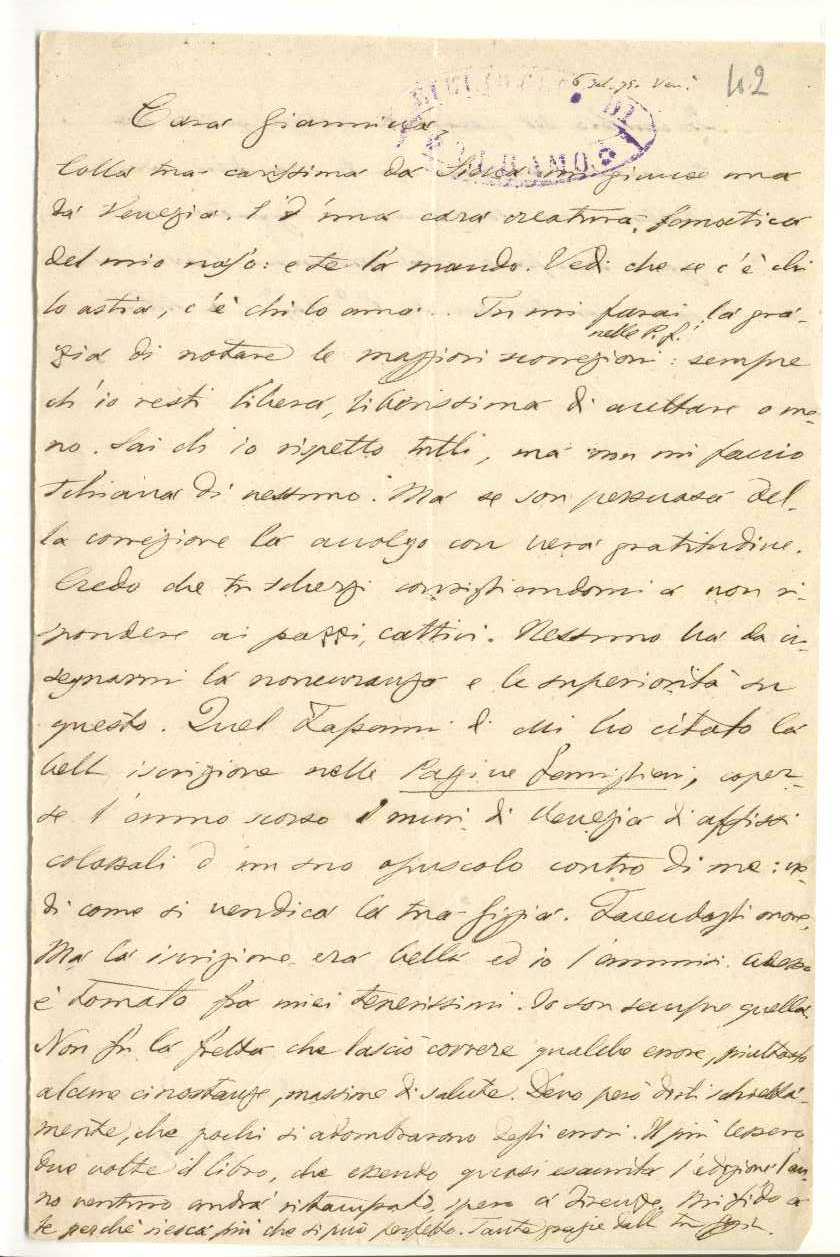 42
6 75. Ven.
BIBLIOTECA DI
BERGAMO
Cara Giannina
Colla tua carissima da Siena mi giunse una
da Venezia. È d'una cara creatura, fanatica
del mio naso: e te la mando. Vedi che se c'è chi
lo astia, c'è chi lo ama.. Tu mi farai la gra-
nelle P. f.
zia di notare le maggiori scorrezioni: sempre
ch'io resti libera, liberissima di accettare o me-
no. Sai ch'io rispetto tutti, ma non mi faccio
schiava di nessuno. Ma se son persuasa del-
la correzione la accolgo con vera gratitudine.
Credo che tu scherzi consigliandomi a non ri-
spondere ai pazzi, cattivi. Nessuno ha da in-
segnarmi la noncuranza e la superiorità su
questo. Quel di chi ho citato la
bell iscrizione nelle Pagine famigliari, coper-
se l'anno scorso i muri di Venezia di affissi
colossali d'un suo opuscolo contro di me: ve-
di come si vendica la tua Gigia. Facendogli onore.
Ma la iscrizione era bella ed io l'ammirai. Adesso
è tornato fra miei tenerissimi. Io son sempre quella.
Non fu la fretta che lasciò correre qualche errore, piuttosto
alcune circostanze, massime di salute. Devo però dirti schietta-
mente, che pochi si adombrarono degli errori. I più lessero
due volte il libro, che essendo quasi esaurita l'edizione l'an-
no venturo andrà ristampato, spero a Firenze. Mi fido a
te perchè riesca più che si può perfetto. Tante grazie dalla tua Gigia.